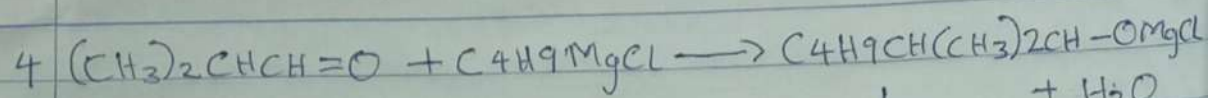 4 (CH3)2CHCH=O + C4H9MgCl ⟶ C4H9CH(CH3)2CH-OMgCl
+ H2O